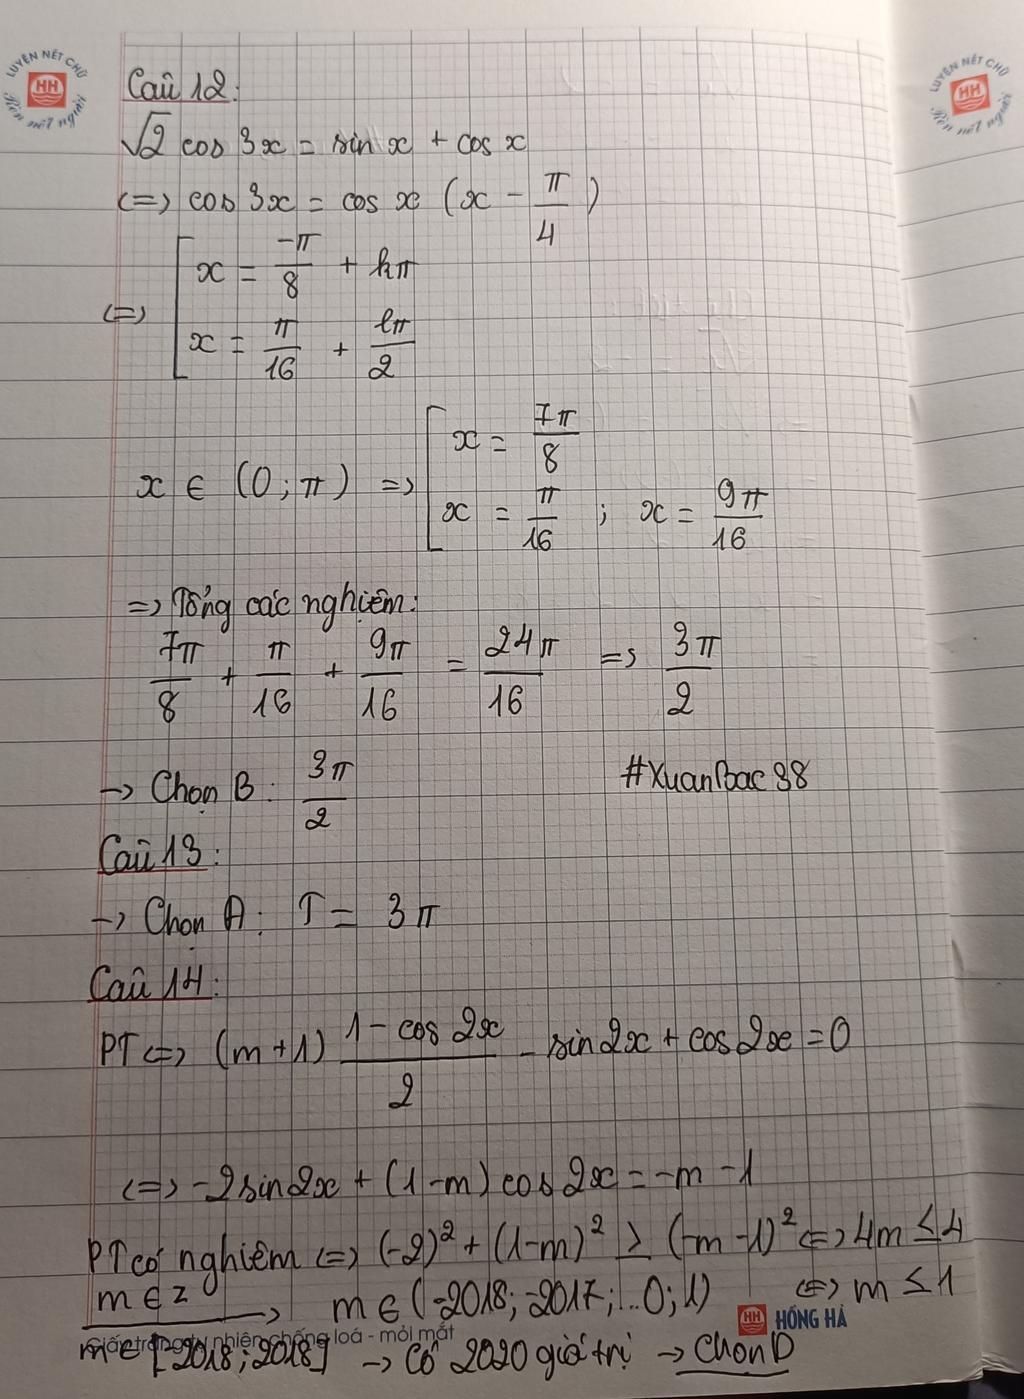 LUYỆN NẾT CHỮ
HH
Rèn nết người
LUYỆN NẾT CHỮ
HH
Rèn nết người
Câu 12:
√2 cos 3x = sin x + cos x
<=> cos 3x = cos x (x - π/4)
<=> [ x = -π/8 + kπ
x = π/16 + lπ/2
x ∈ (0; π) => [ x = 7π/8
x = π/16 ; x = 9π/16
=> Tổng các nghiệm:
7π/8 + π/16 + 9π/16 = 24π/16 => 3π/2
-> Chọn B: 3π/2
#XuanBac98
Câu 13:
-> Chọn A: T = 3π
Câu 14:
PT <=> (m+1) (1 - cos 2x)/2 - sin 2x + cos 2x = 0
<=> -2 sin 2x + (1-m) cos 2x = -m - 1
PT có nghiệm <=> (-2)² + (1-m)² ≥ (-m-1)² <=> 4m ≤ 4
<=> m ≤ 1
m ∈ Z -> m ∈ (-2018; -2017; ...0; 1)
HH HỒNG HÀ
Giấy trắng tự nhiên chống loá - mỏi mắt
m ∈ [-2018; 2018] -> Có 2020 giá trị -> Chọn D